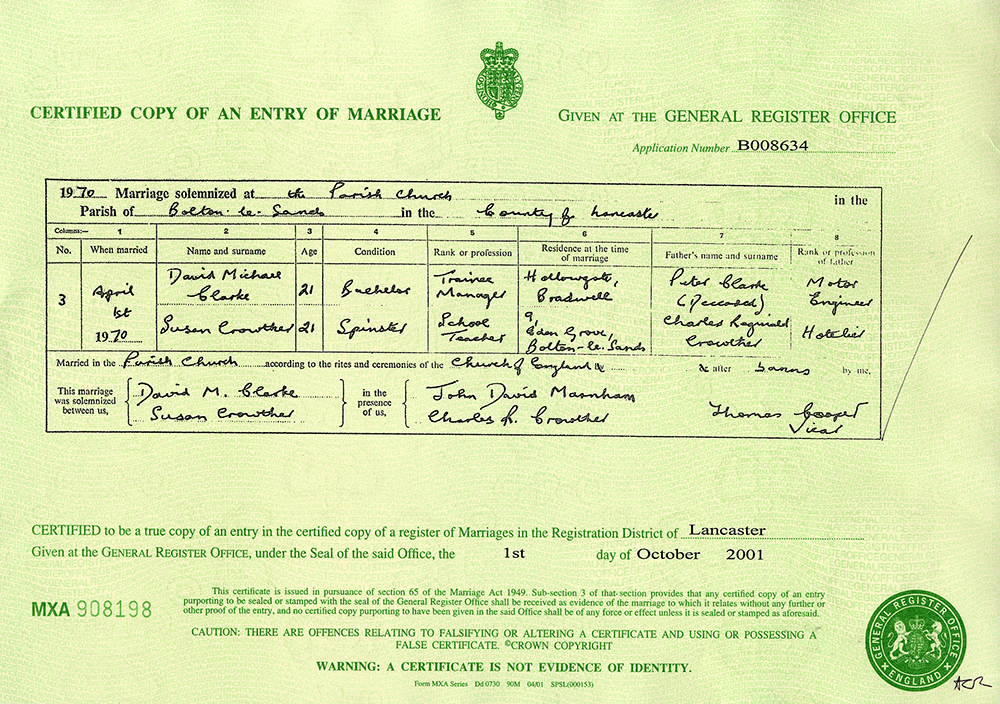 CERTIFIED COPY OF AN ENTRY OF MARRIAGE
GIVEN AT THE GENERAL REGISTER OFFICE
Application Number B008634
1970 Marriage solemnized at the Parish Church in the
Parish of Bolton-le-Sands in the County of Lancaster
Columns:— 1 2 3 4 5 6 7 8
No. When married Name and surname Age Condition Rank or profession Residence at the time of marriage Father's name and surname Rank or profession of father
3 April 1st 1970
David Michael Clarke 21 Bachelor Trainee Manager Hollowgate, Bradwell Peter Clarke (Deceased) Motor Engineer
Susan Crowther 21 Spinster School Teacher 9, Eden Grove, Bolton-le-Sands Charles Reginald Crowther Hotelier
Married in the Parish Church according to the rites and ceremonies of the Church of England & & after banns by me,
This marriage was solemnized between us, David M. Clarke Susan Crowther in the presence of us, John David Marnham Charles R. Crowther Thomas Cooper Vicar
CERTIFIED to be a true copy of an entry in the certified copy of a register of Marriages in the Registration District of Lancaster
Given at the GENERAL REGISTER OFFICE, under the Seal of the said Office, the 1st day of October 2001
MXA 908198
This certificate is issued in pursuance of section 65 of the Marriage Act 1949. Sub-section 3 of that section provides that any certified copy of an entry
purporting to be sealed or stamped with the seal of the General Register Office shall be received as evidence of the marriage to which it relates without any further or
other proof of the entry, and no certified copy purporting to have been given in the said Office shall be of any force or effect unless it is sealed or stamped as aforesaid.
CAUTION: THERE ARE OFFENCES RELATING TO FALSIFYING OR ALTERING A CERTIFICATE AND USING OR POSSESSING A
FALSE CERTIFICATE. ©CROWN COPYRIGHT
WARNING: A CERTIFICATE IS NOT EVIDENCE OF IDENTITY.
Form MXA Series Dd 0730 90M 04/01 SPSL(000153)
GENERAL REGISTER OFFICE
ENGLAND